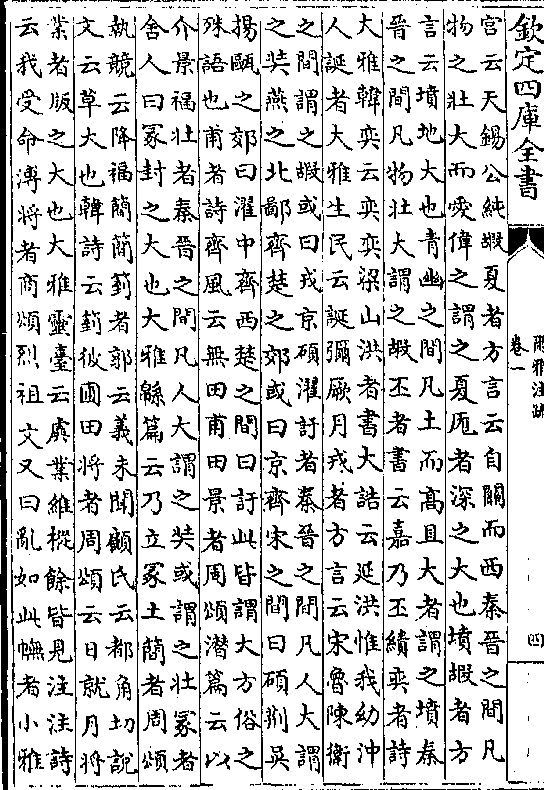 欽定四庫全書
爾雅注疏
卷一
四
宫云天錫公純嘏夏者方言云自關而西秦晉之間凡
物之壯大而愛偉之謂之夏厖者深之大也墳嘏者方
言云墳地大也青幽之間凡土而高且大者謂之墳秦
晉之間凡物壯大謂之嘏丕者書云嘉乃丕績奕者詩
大雅韓奕云奕奕梁山洪者書大誥云延洪惟我幼沖
人誕者大雅生民云誕彌厥月戎者方言云宋魯陳衛
之間謂之嘏或曰戎京碩濯訏者秦晉之間凡人大謂
之奘燕之北鄙齊楚之郊或曰京齊宋之間曰碩荆吳
揚甌之郊曰濯中齊西楚之間曰訏此皆謂大方俗之
殊語也甫者詩齊風云無田甫田景者周頌潜篇云以
介景福壯者秦晉之間凡人大謂之奘或謂之壯冢者
舍人曰冢封之大也大雅緜篇云乃立冢土簡者周頌
執競云降福簡簡箌者郭云義未聞顧氏云都角切說
文云草大也韓詩云箌彼圃田將者周頌云日就月將
業者版之大也大雅靈臺云虡業維樅餘皆見注注詩
云我受命溥將者商頌烈祖文又曰亂如此幠者小雅